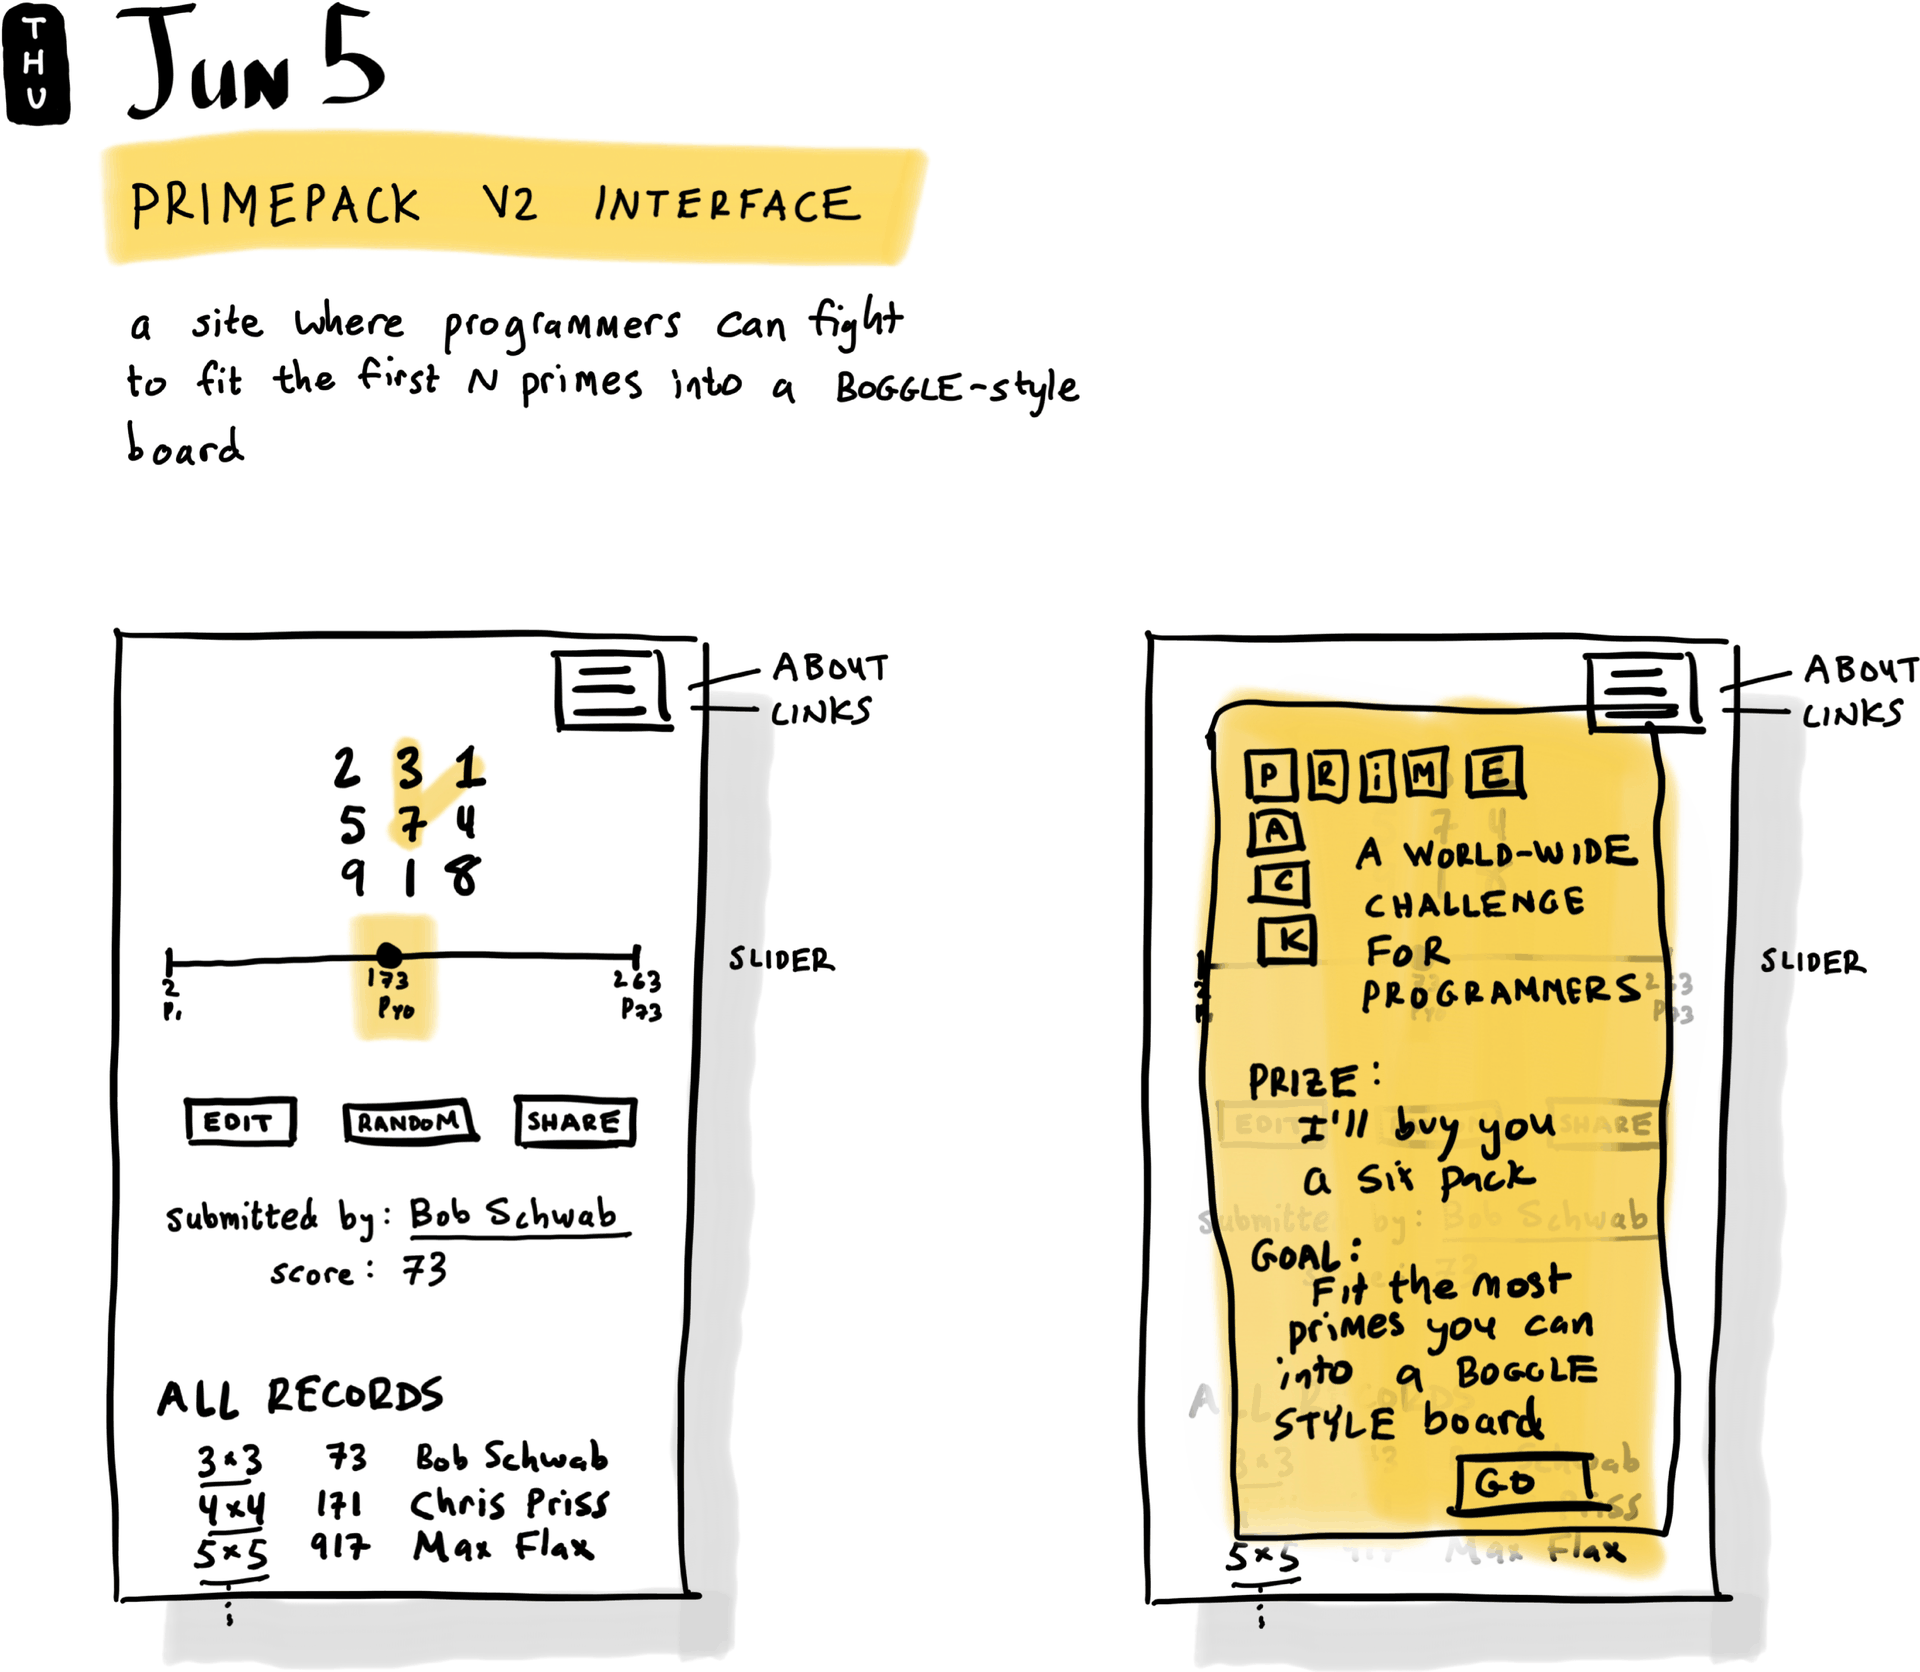 THU
Jun 5
PRIMEPACK V2 INTERFACE
a site where programmers can fight
to fit the first N primes into a BOGGLE-style
board
ABOUT
LINKS
2 3 1
5 7 4
9 1 8
SLIDER
2 173 263
P1 P40 P73
EDIT RANDOM SHARE
submitted by: Bob Schwab
score: 73
ALL RECORDS
3x3 73 Bob Schwab
4x4 171 Chris Priss
5x5 917 Max Flax
ABOUT
LINKS
PRiME
A
C
K
A WORLD-WIDE
CHALLENGE
FOR
PROGRAMMERS
SLIDER
263
P73
PRIZE:
I'll buy you
a six pack
EDIT SHARE
submitte by: Bob Schwab
GOAL:
Fit the most
primes you can
into a BOGGLE
STYLE board
GO
5x5 917 Max Flax